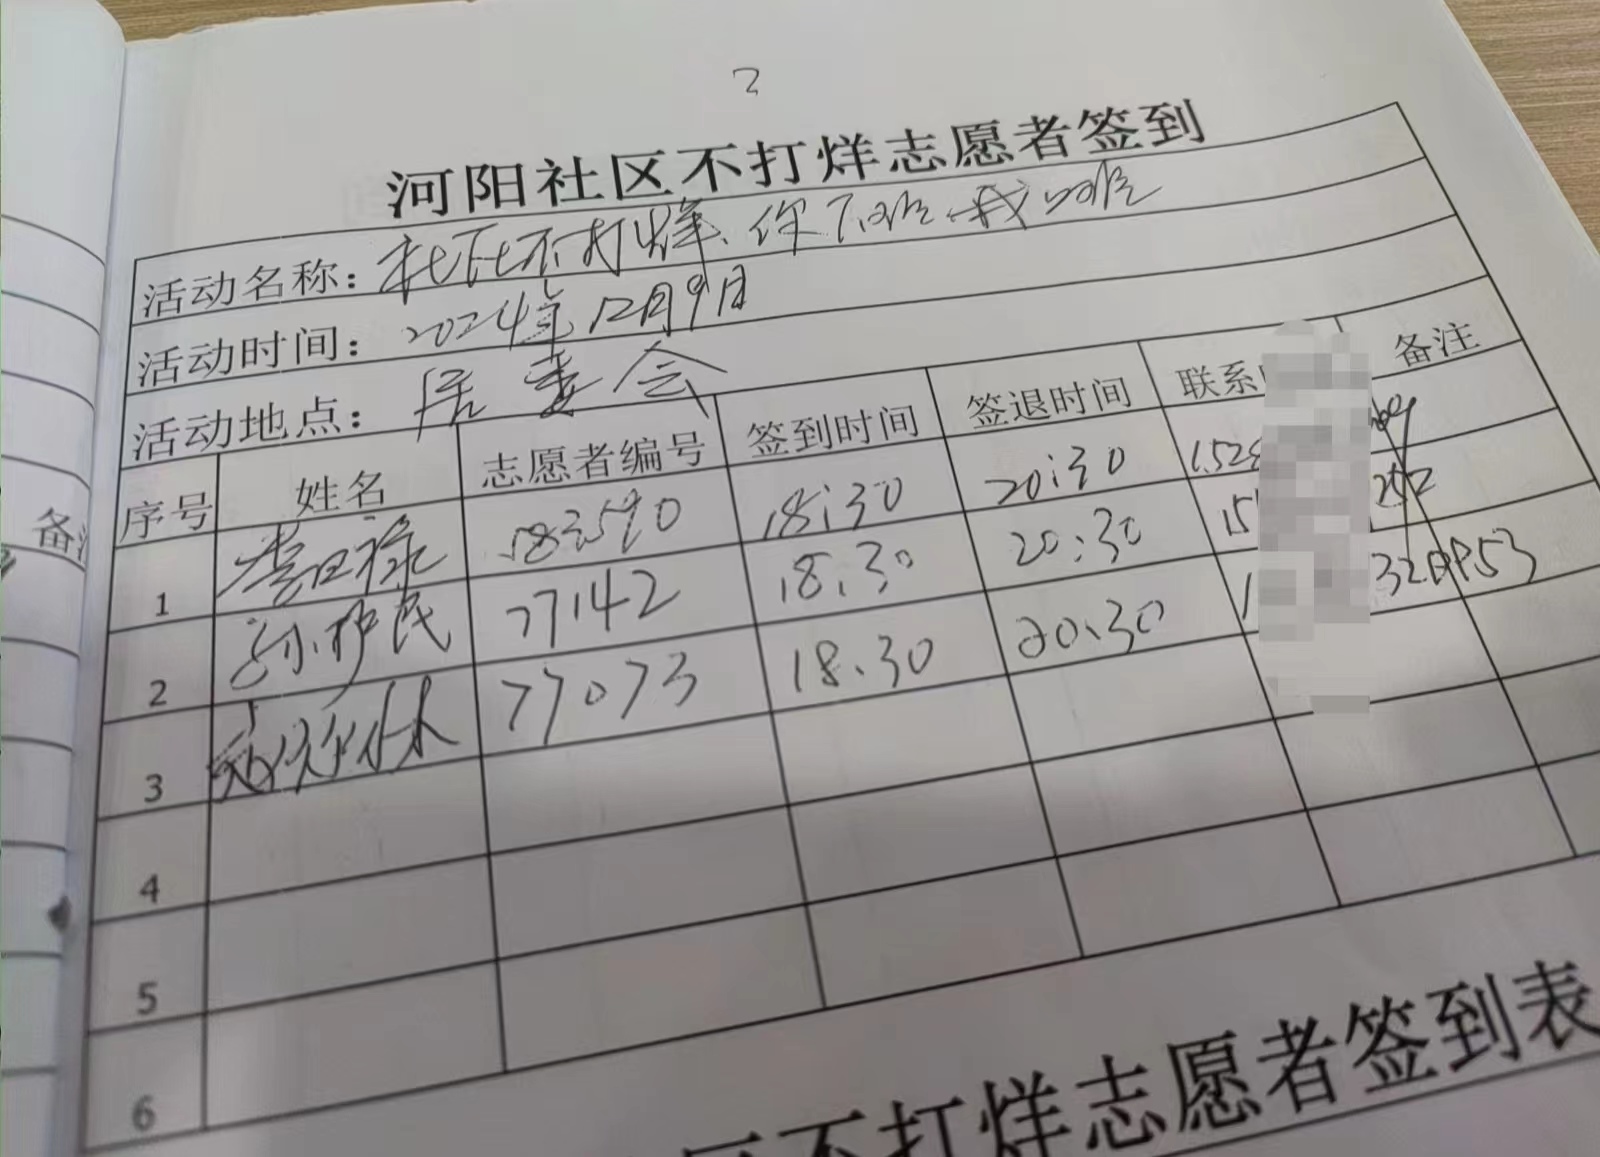 2
河阳社区不打烊志愿者签到
活动名称：社区不打烊、你下班我
活动时间：2024年12月9日
活动地点：居委会
序号 姓名 志愿者编号 签到时间 签退时间 联系 备注
1 583590 18:30 20:30 1528
2 孙护民 77142 18.30 20:30 15 252
3 77073 18.30 20.30 1 53
4
5
6
区不打烊志愿者签到表
备注